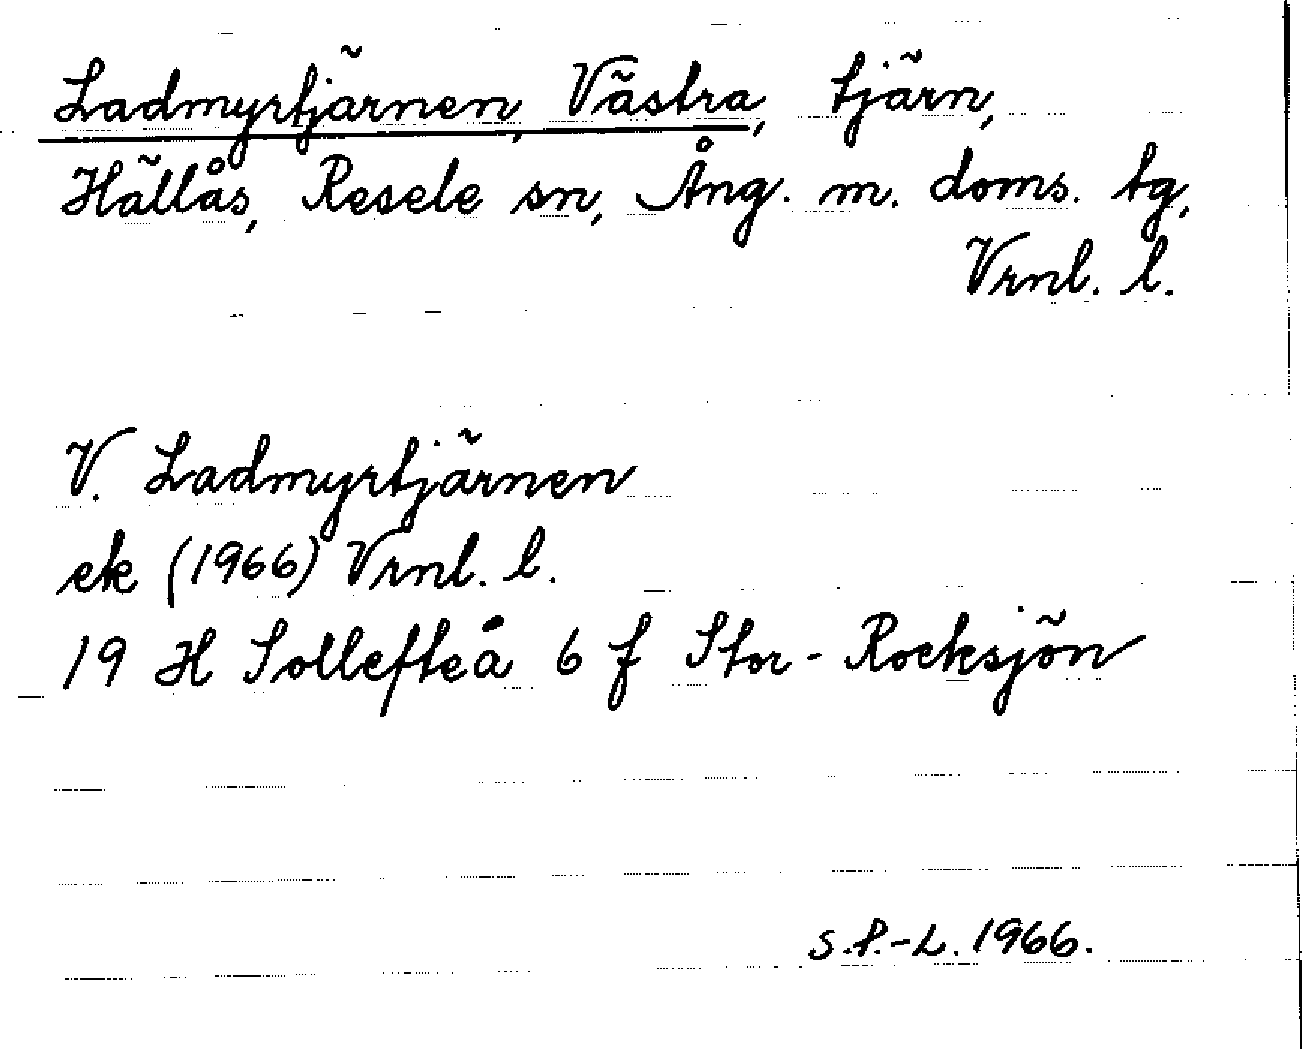 Ladmyrtjärnen, Västra, tjärn,
Hällås, Resele sn, Ång. m. doms. tg,
Vrnl. l.
V. Ladmyrtjärnen
ek (1966) Vrnl. l.
19 H Sollefteå 6 f Stor-Rocksjön
S.P.-L. 1966.